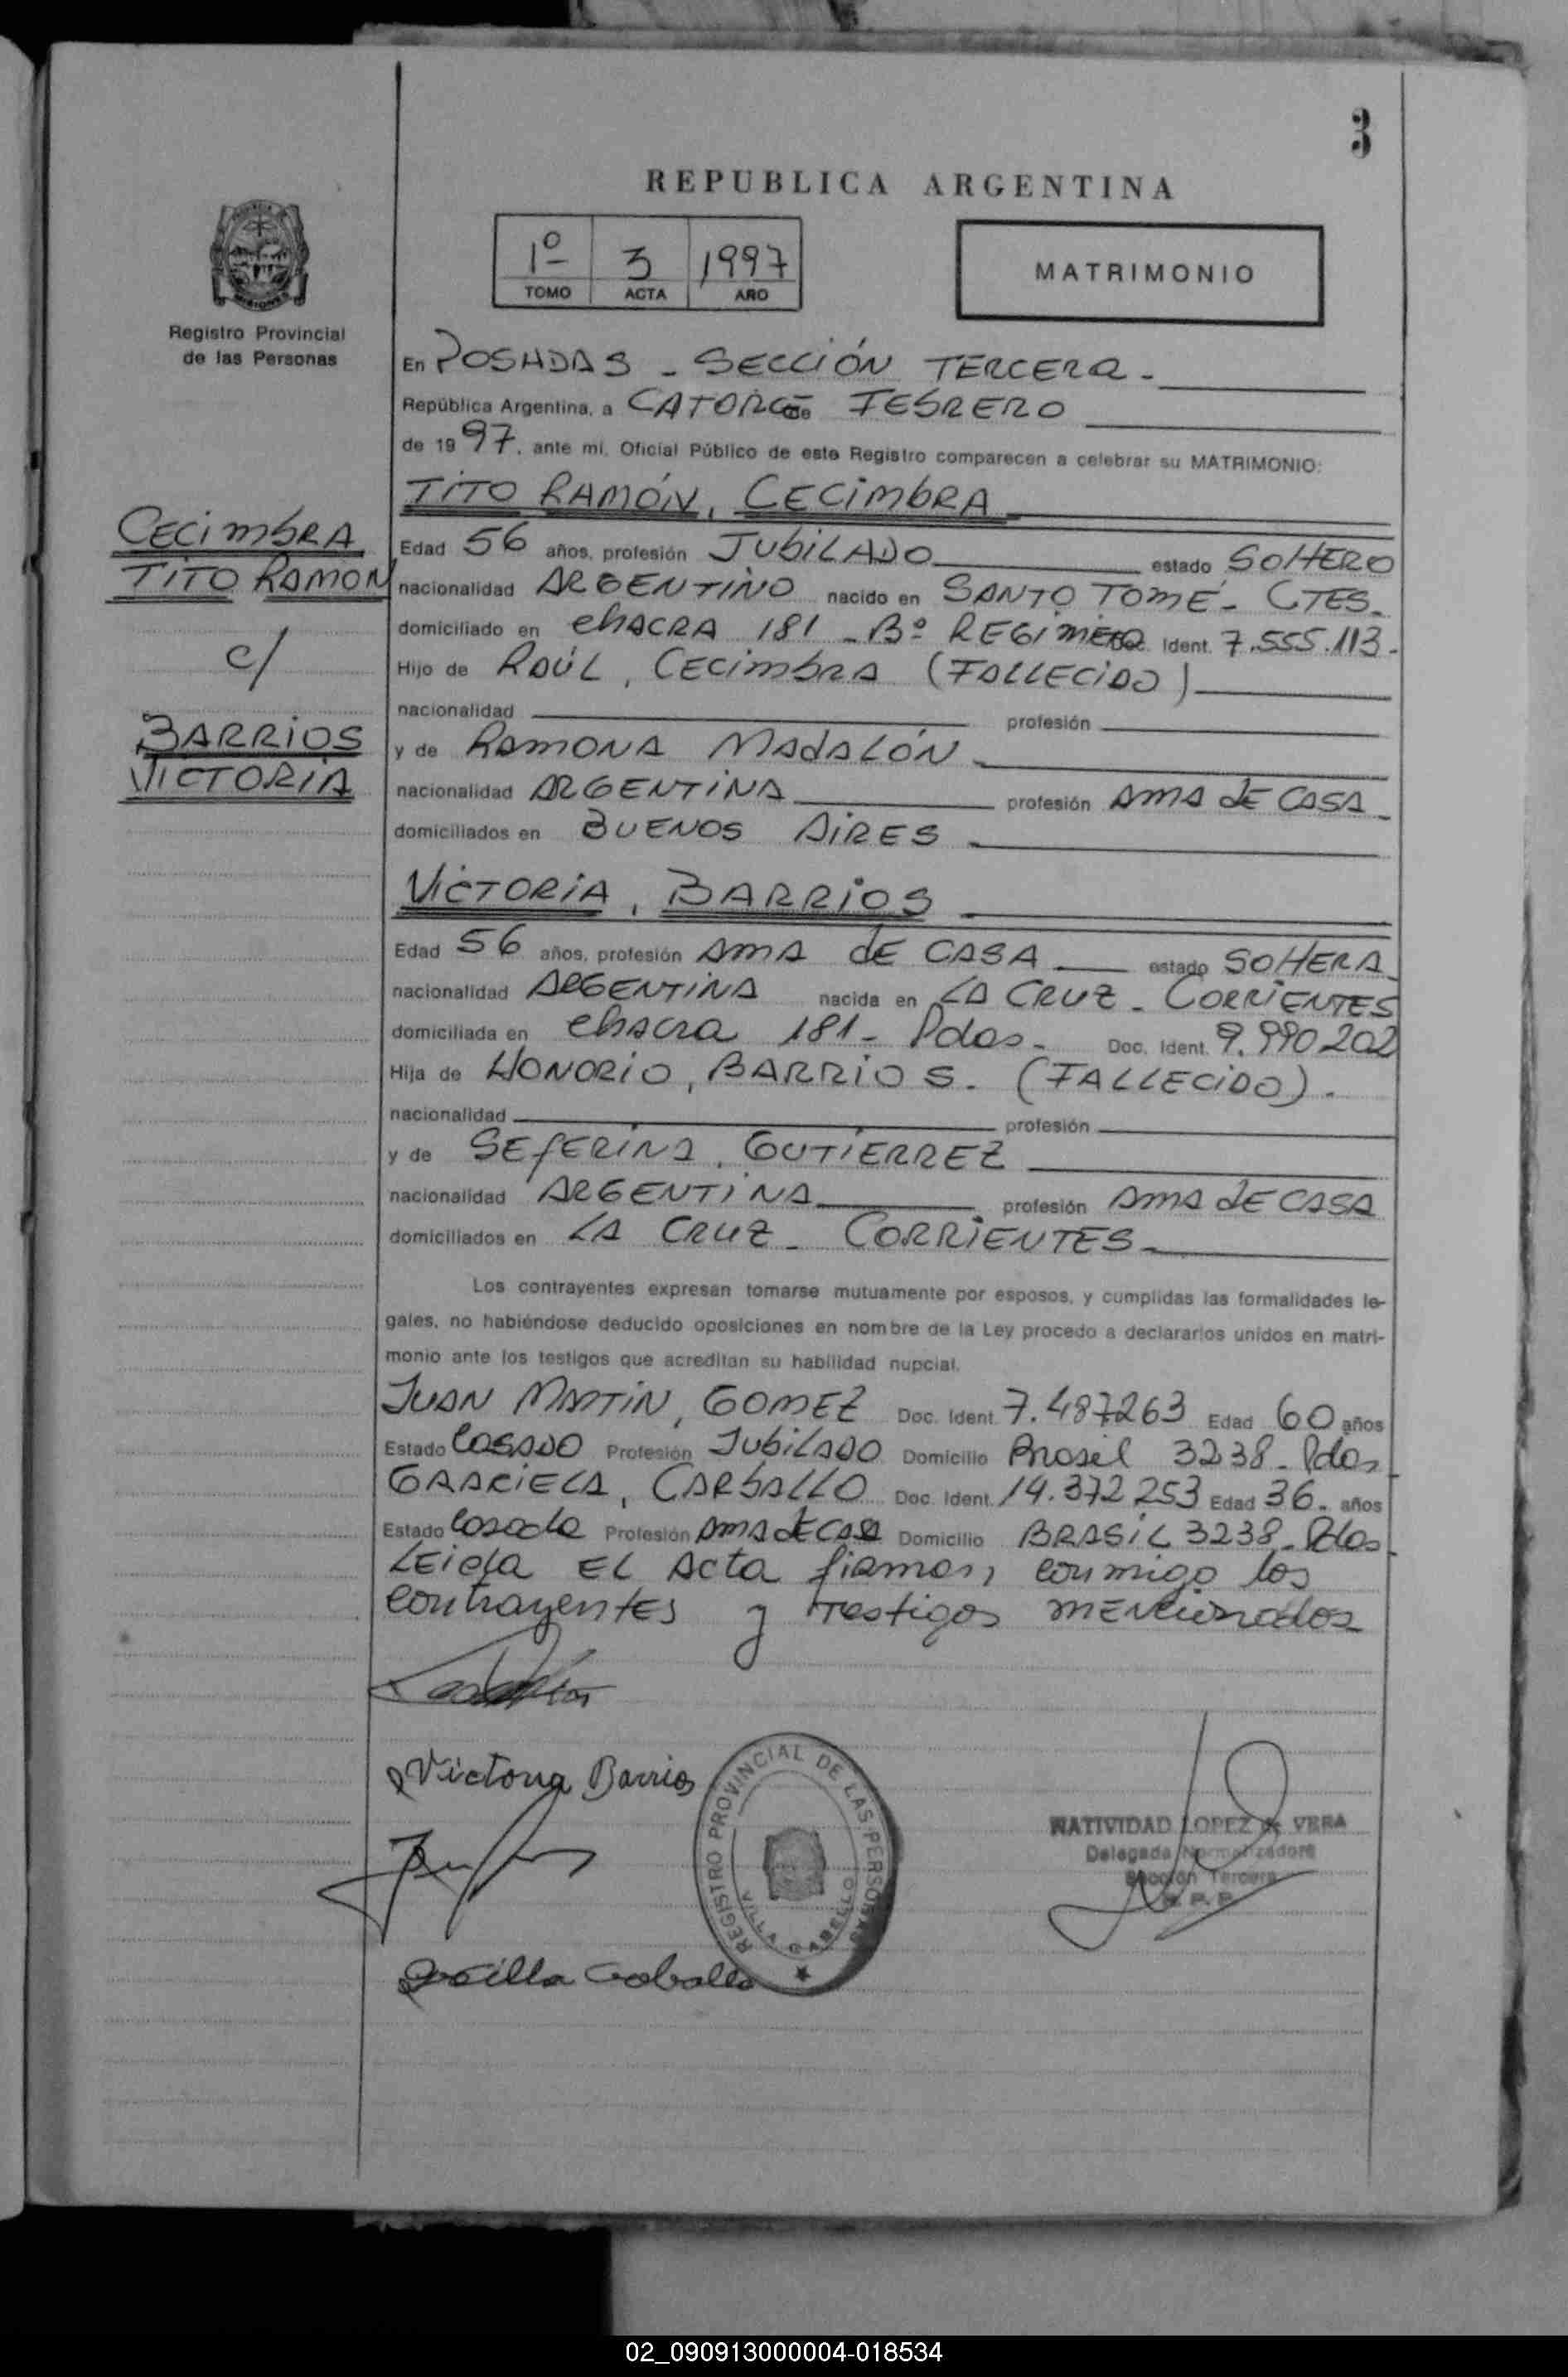 3
REPUBLICA ARGENTINA
1º 3 1997
TOMO ACTA AÑO
MATRIMONIO
Registro Provincial
de las Personas
En POSADAS - SECCIÓN TERCERA -
República Argentina, a CATORCE de FEBRERO
de 1997, ante mi, Oficial Público de este Registro comparecen a celebrar su MATRIMONIO:
TITO RAMÓN, CECIMBRA
CECIMBRA
TITO RAMON
c/
BARRIOS
VICTORIA
Edad 56 años, profesión JUBILADO estado SOLTERO
nacionalidad ARGENTINO nacido en SANTO TOMÉ - CTES.
domiciliado en CHACRA 181 - Bº REGIMIENTO Doc. Ident. 7.555.113.
Hijo de RAÚL, CECIMBRA (FALLECIDO)
nacionalidad profesión
y de RAMONA MADALÓN
nacionalidad ARGENTINA profesión AMA DE CASA
domiciliados en BUENOS AIRES
VICTORIA, BARRIOS
Edad 56 años, profesión AMA DE CASA estado SOLTERA
nacionalidad ARGENTINA nacida en LA CRUZ - CORRIENTES
domiciliada en CHACRA 181 - Pdas. Doc. Ident. 9.990.202
Hija de HONORIO, BARRIOS. (FALLECIDO).
nacionalidad profesión
y de SEFERINA, GUTIERREZ
nacionalidad ARGENTINA profesión AMA DE CASA
domiciliados en LA CRUZ - CORRIENTES -
Los contrayentes expresan tomarse mutuamente por esposos, y cumplidas las formalidades le-
gales, no habiéndose deducido oposiciones en nombre de la Ley procedo a declararlos unidos en matri-
monio ante los testigos que acreditan su habilidad nupcial.
JUAN MARTIN, GOMEZ Doc. Ident. 7.487263 Edad 60 años
Estado CASADO Profesión JUBILADO Domicilio Brasil 3238 - Pdas
GRACIELA, CARBALLO Doc. Ident. 14.372 253 Edad 36. años
Estado Casada Profesión AMA DE CASA Domicilio BRASIL 3238 - Pdas
LEIDA EL ACTA firman, conmigo los
contrayentes y testigos mencionados
Victoria Barrios
REGISTRO PROVINCIAL DE LAS PERSONAS
VILLA CABELLO
NATIVIDAD LOPEZ de VERA
Delegada Normalizadora
Sección Tercera
R. P. P.
02_090913000004-018534